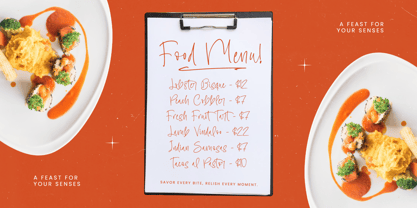 A FEAST FOR
YOUR SENSES
Food Menu!
Lobster Bisque - $12
Peach Cobbler - $7
Fresh Fruit Tart - $7
Lamb Vindaloo - $22
Indian Samosas - $7
Tacos al Pastor - $10
SAVOR EVERY BITE, RELISH EVERY MOMENT
A FEAST FOR
YOUR SENSES